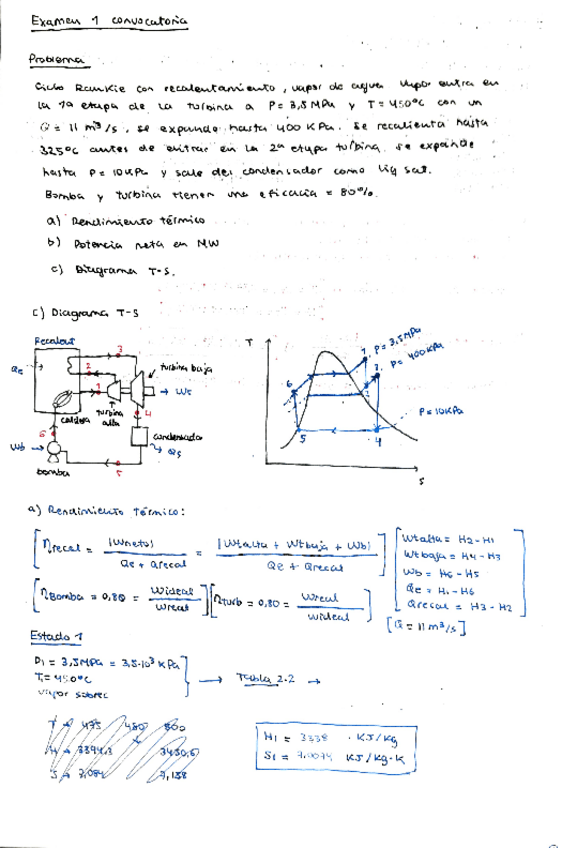 Examen 1 convocatoria
Problema
Ciclo Rankie con recalentamiento, vapor de agua vapor entra en
la 1ª etapa de la turbina a P = 3,5 MPa y T = 450°C con un
Q = 11 m³/s, se expande hasta 400 KPa. Se recalienta hasta
325°C antes de entrar en la 2ª etapa turbina, se expande
hasta P = 10KPa y sale del condensador como liq sat.
Bomba y turbina tienen una eficacia = 80%.
a) Rendimiento térmico
b) Potencia neta en MW
c) Diagrama T-S.
c) Diagrama T-S
Recalent
Qe
3
2
1
turbina baja
Wt
turbina alta
caldera
4
6
condensador
Qs
Wb
bomba
5
T
1
P = 3,5MPa
3
P = 400KPa
6
P = 10KPa
5
4
S
a) Rendimiento térmico:
ηrecal = |Wneto| / Qe + Qrecal = |Wtalta + Wtbaja + Wb| / Qe + Qrecal
Wtalta = H2 - H1
Wtbaja = H4 - H3
Wb = H6 - H5
Qe = H1 - H6
Qrecal = H3 - H2
[Q = 11 m³/s]
ηBomba = 0,80 = Wideal / Wreal
ηturb = 0,80 = Wreal / Wideal
Estado 1
P1 = 3,5MPa = 3,5·10³ KPa
T1 = 450°C
vapor sobrec
→ Tabla 2.2 →
H1 = 3338 KJ/Kg
S1 = 7,0074 KJ/Kg·K
T → 475
H → 3394,3
S → 7,084
7,158